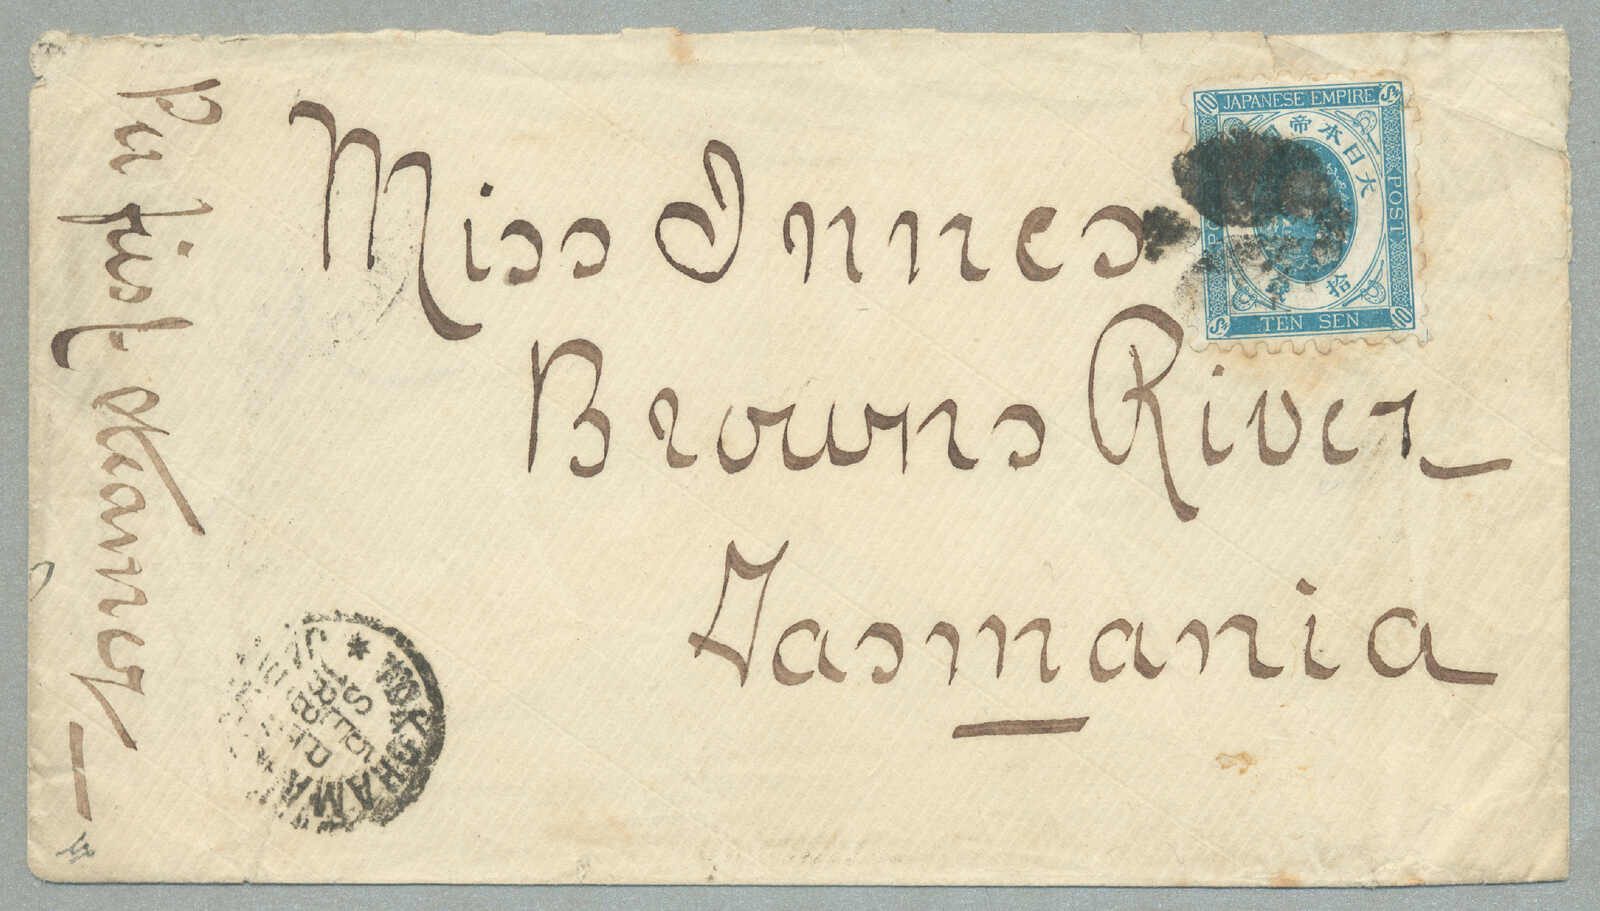 Per first steamer
Miss Innes
Browns River
Tasmania
10 JAPANESE EMPIRE Sn
大日本帝
POST
拾
Sn TEN SEN 10
YOKOHAMA
JAPAN